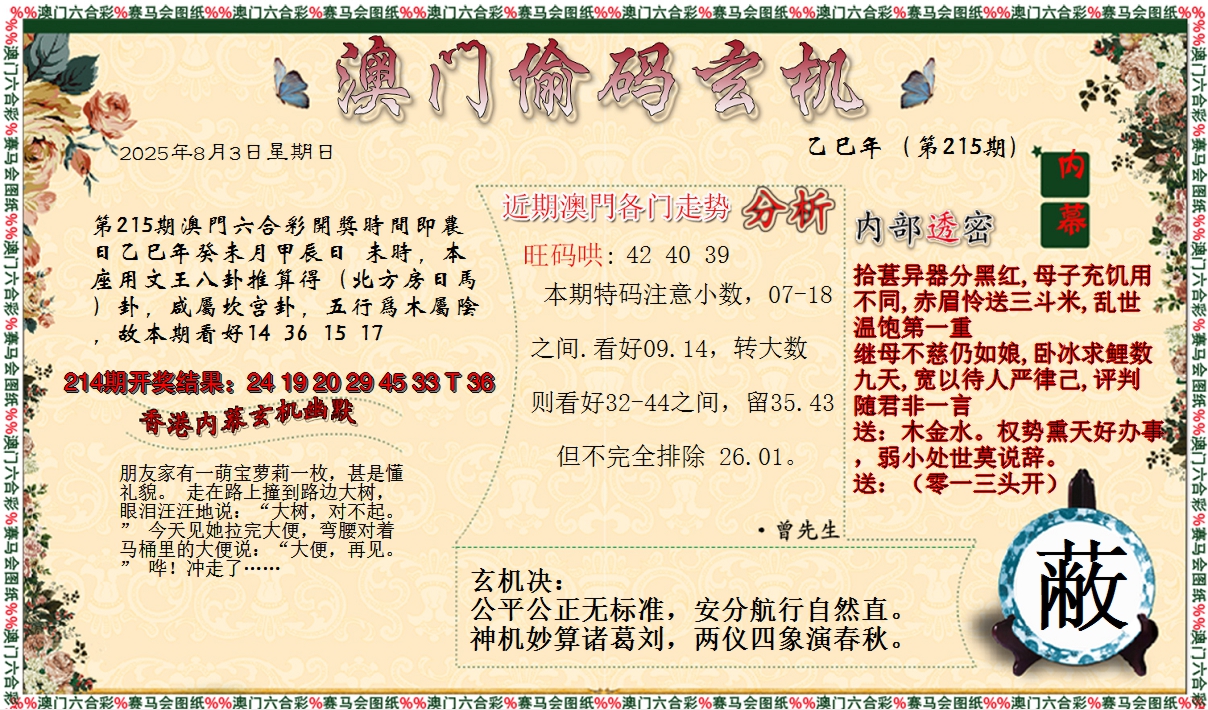 %%澳门六合彩%赛马会图纸%%澳门六合彩%赛马会图纸%%澳门六合彩%赛马会图纸%%澳门六合彩%赛马会图纸%%澳门六合彩%赛马会图纸%%澳门六合彩%赛马会图纸%%
澳门偷码玄机
2025年8月3日星期日
乙巳年（第215期）
内幕
第215期澳門六合彩開獎時間即農
日乙巳年癸未月甲辰日 未時，本
座用文王八卦推算得（北方房日馬
）卦，咸屬坎宫卦，五行爲木屬陰
，故本期看好14 36 15 17
214期开奖结果：24 19 20 29 45 33 T 36
香港内幕玄机幽默
朋友家有一萌宝萝莉一枚，甚是懂
礼貌。 走在路上撞到路边大树，
眼泪汪汪地说：“大树，对不起。
” 今天见她拉完大便，弯腰对着
马桶里的大便说：“大便，再见。
” 哗！冲走了……
近期澳門各门走势 分析
旺码哄: 42 40 39
本期特码注意小数，07-18
之间.看好09.14，转大数
则看好32-44之间，留35.43
但不完全排除 26.01。
·曾先生
内部透密
拾葚异器分黑红,母子充饥用
不同,赤眉怜送三斗米,乱世
温饱第一重
继母不慈仍如娘,卧冰求鲤数
九天,宽以待人严律己,评判
随君非一言
送：木金水。权势熏天好办事
，弱小处世莫说辞。
送：（零一三头开）
玄机决：
公平公正无标准，安分航行自然直。
神机妙算诸葛刘，两仪四象演春秋。
蔽
%%澳门六合彩%赛马会图纸%%澳门六合彩%赛马会图纸%%澳门六合彩%赛马会图纸%%澳门六合彩%赛马会图纸%%澳门六合彩%赛马会图纸%%澳门六合彩%赛马会图纸%%